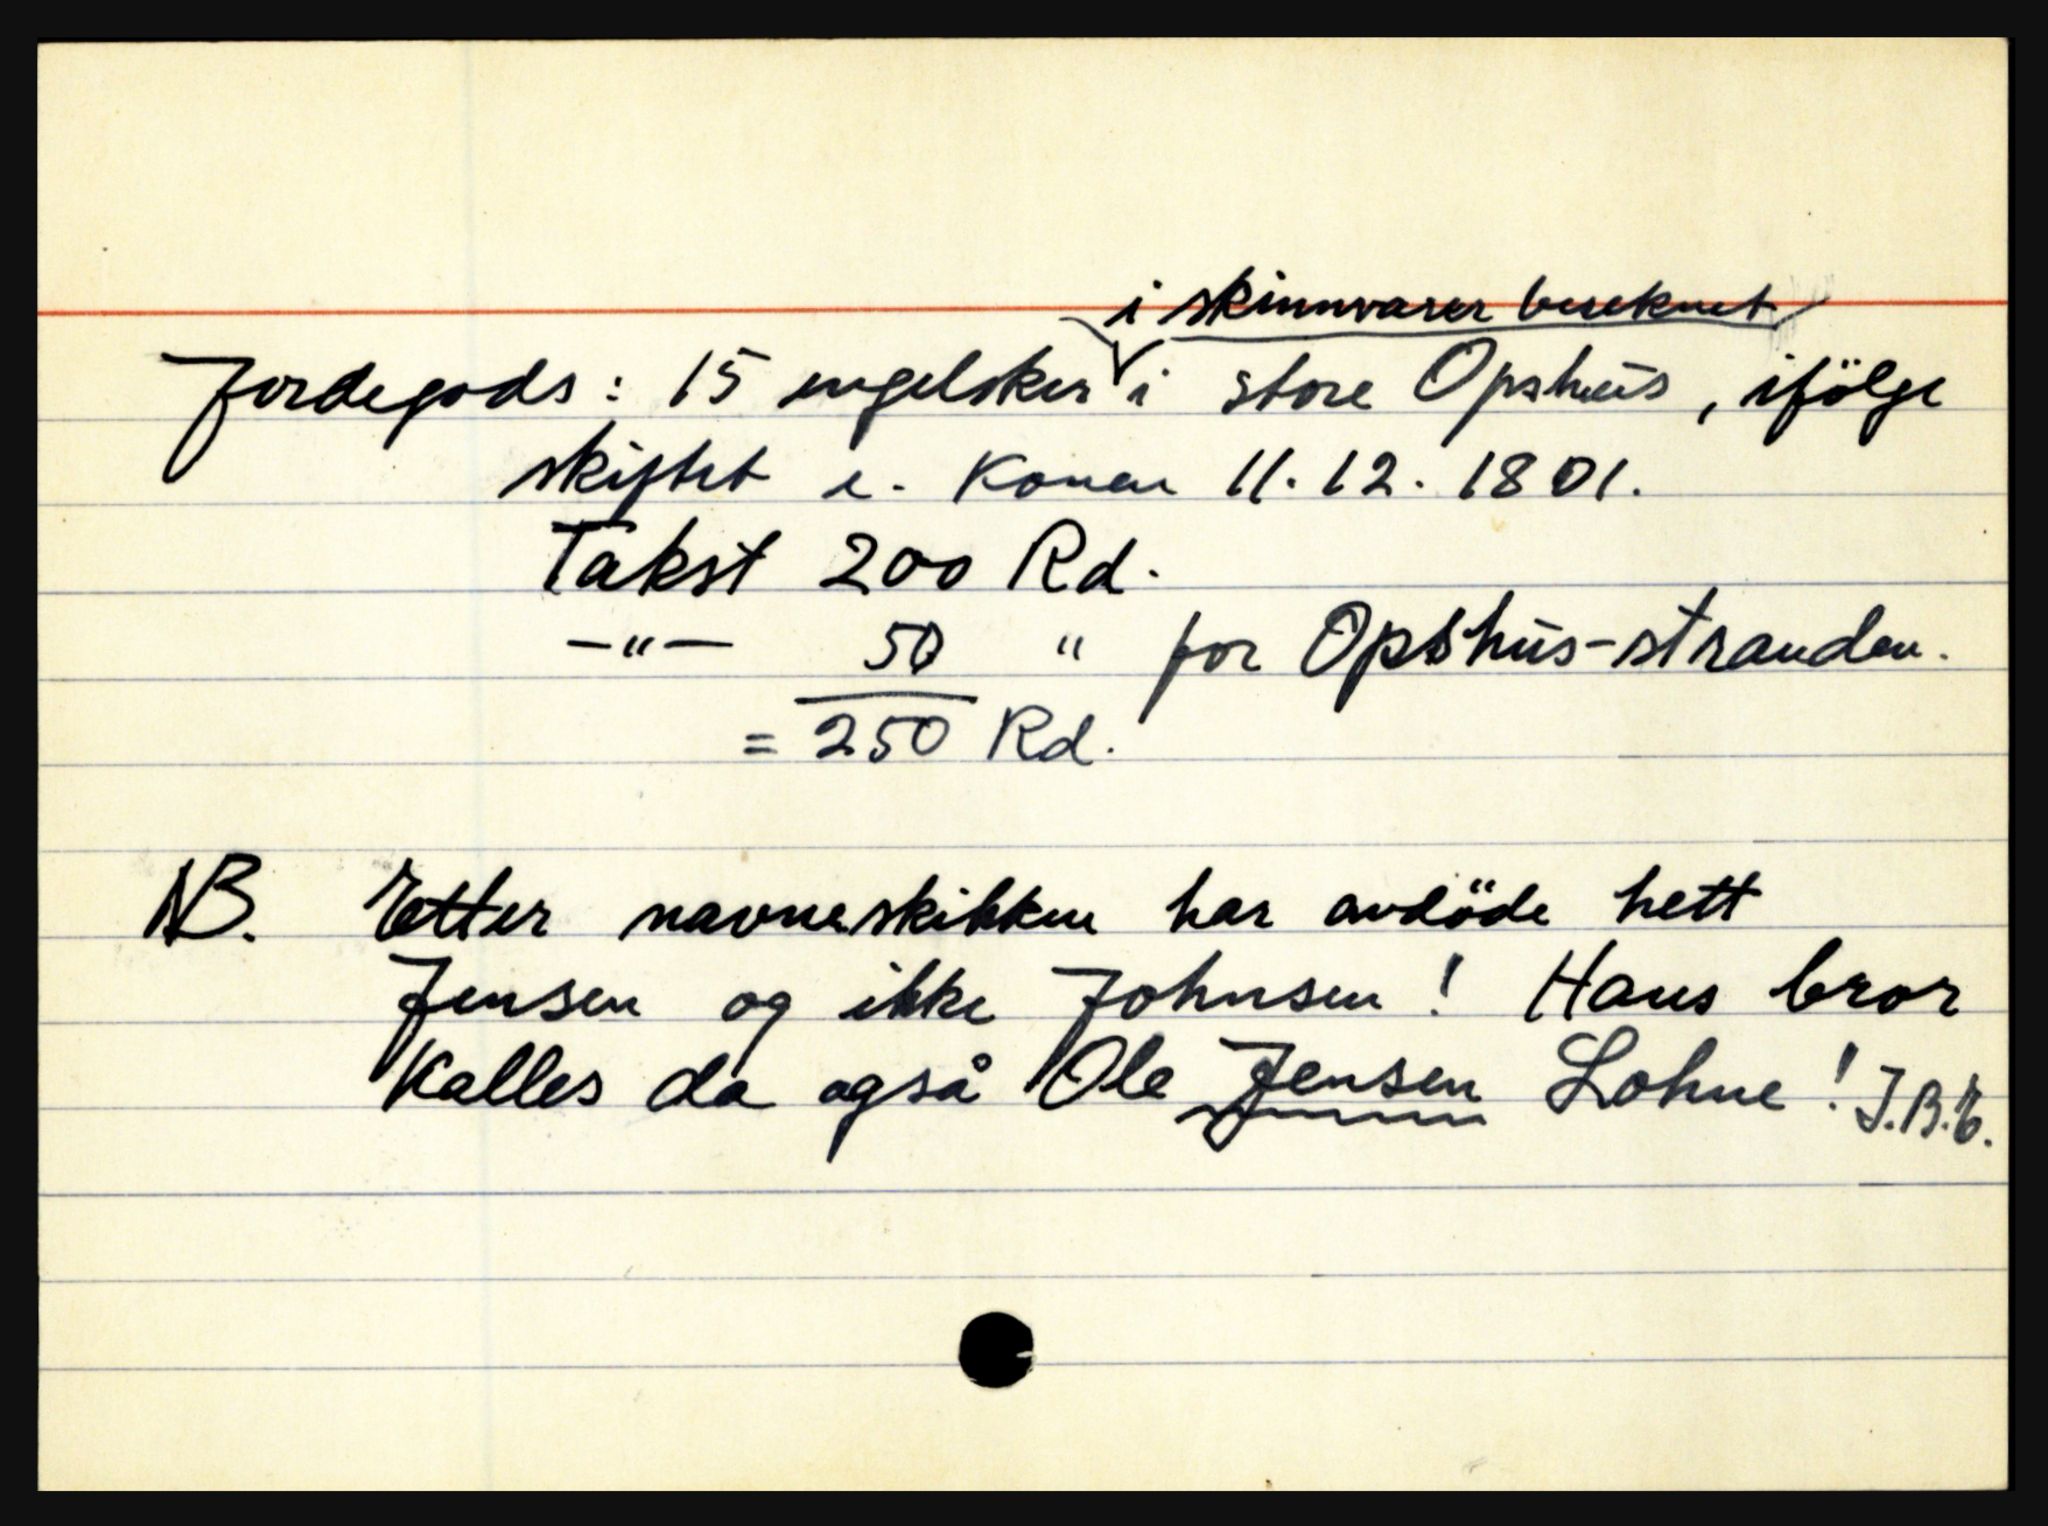 i skinnvarer bereknet
Jordegods: 15 engelsker i store Opshus, ifölge
skiftet e. Konen 11.12.1801.
Takst 200 Rd.
—"— 50 " for Opshus-stranden.
= 250 Rd.
NB. Etter navneskikken har avdöde hett
Jensen og ikke Johnsen! Hans bror
Kalles da også Ole Jensen Lohne! J.B.E.